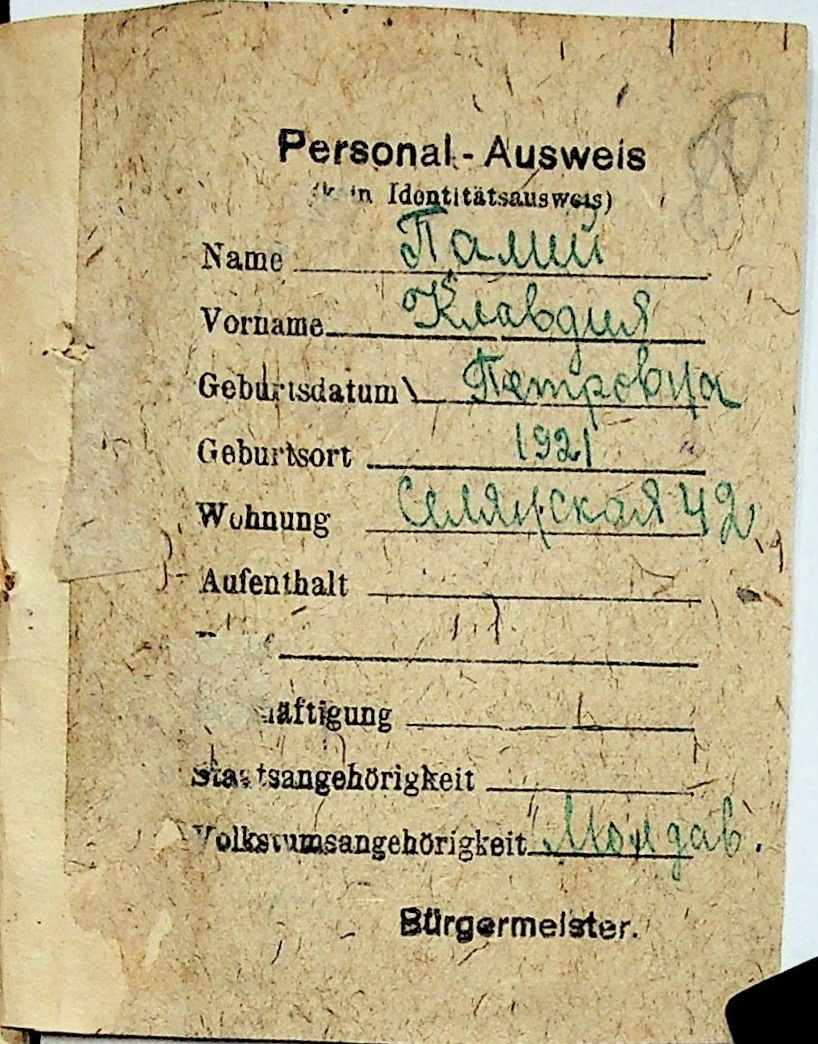 Personal-Ausweis
in Identitätsausweis)
Name Палий
Vorname Клавдия
Geburtsdatum Петровна
Geburtsort 1921
Wohnung 42
Aufenthalt
äftigung
Staatsangehörigkeit
Volkstumsangehörigkeit Молдав.
Bürgermeister.